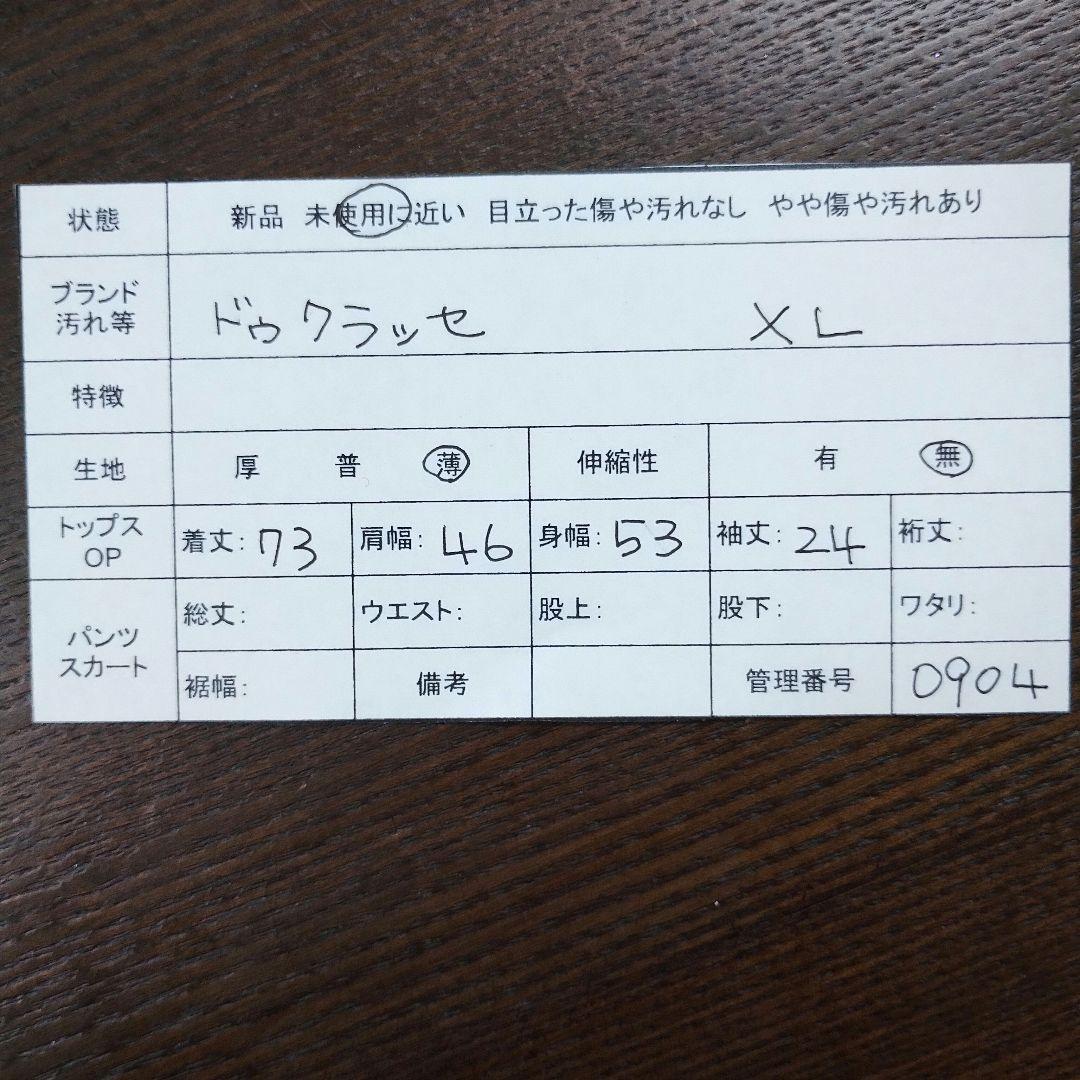 状態 新品 未使用に近い 目立った傷や汚れなし やや傷や汚れあり
ブランド
汚れ等 ドゥクラッセ XL
特徴
生地 厚 普 薄 伸縮性 有 無
トップス
OP 着丈: 73 肩幅: 46 身幅: 53 袖丈: 24 裄丈:
パンツ
スカート 総丈: ウエスト: 股上: 股下: ワタリ:
裾幅: 備考 管理番号 0904